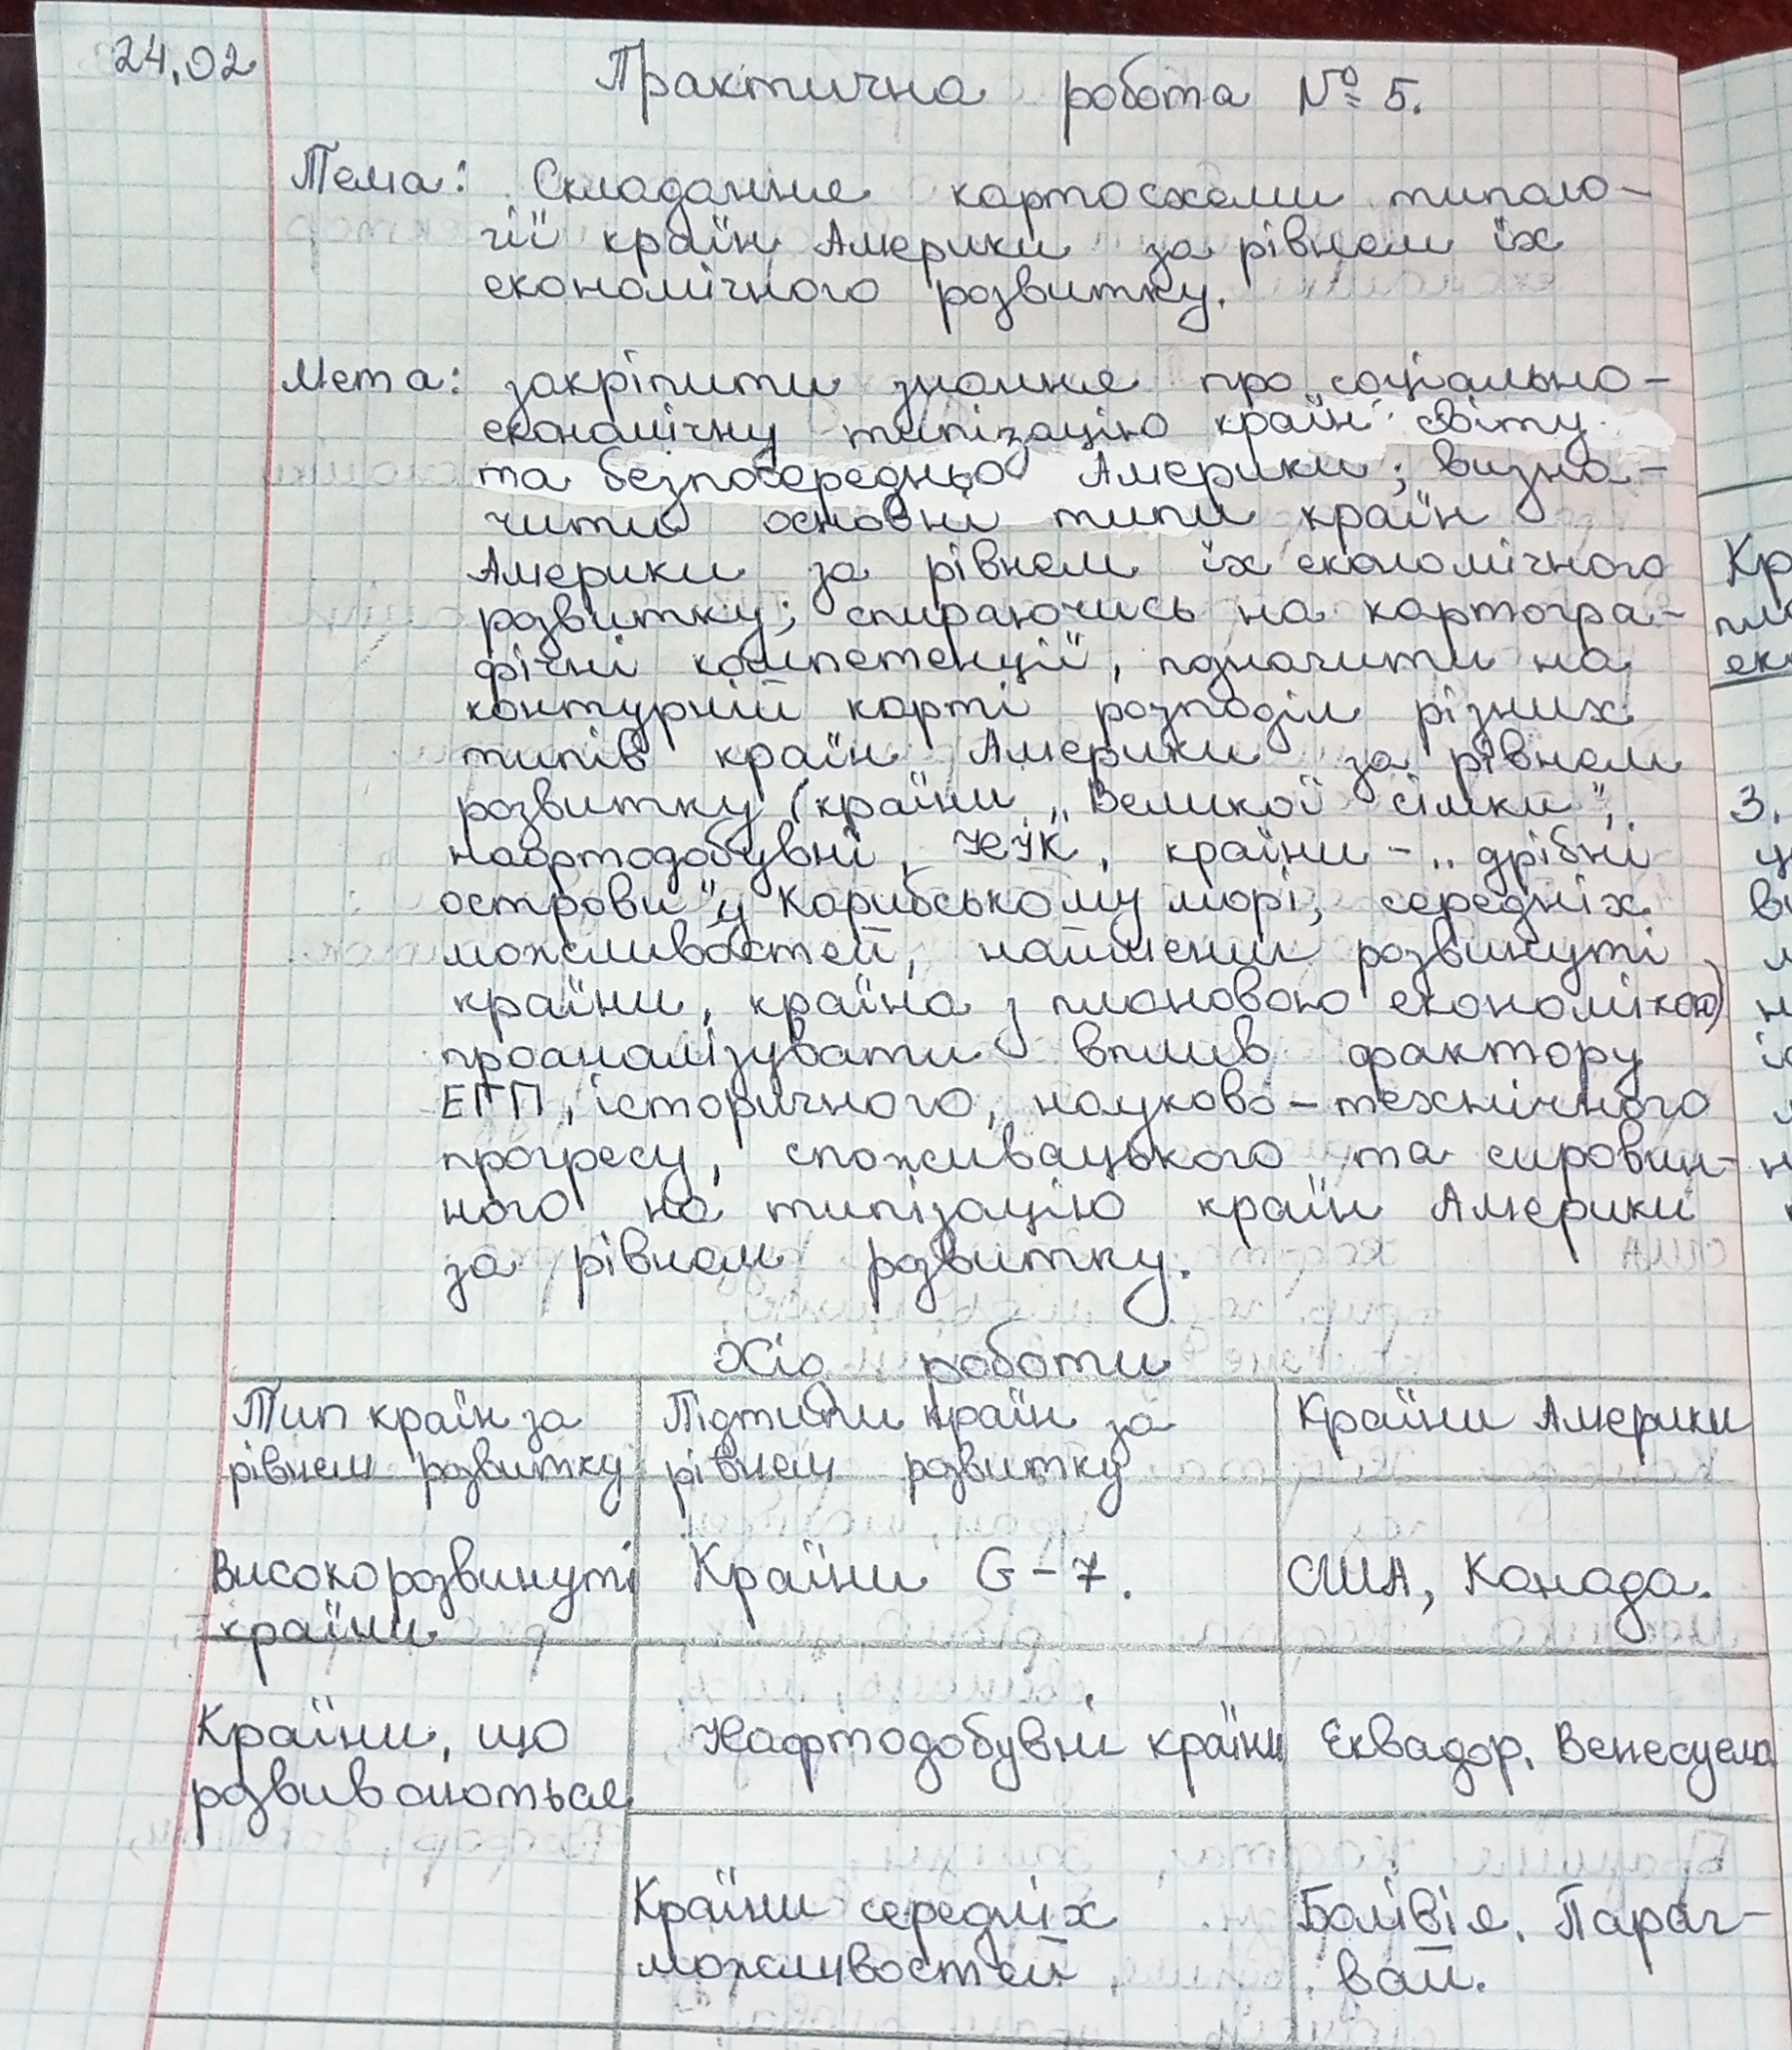 24.02
Практична робота № 5.
Тема: Складання картосхеми типоло-
гії країн Америки за рівнем їх
економічного розвитку.
Мета: закріпити знання про соціально-
економічну типізацію країн світу
та безпосередньо Америки; визна-
чити основні типи країн
Америки за рівнем їх економічного
розвитку; спираючись на картогра-
фічні компетенції, позначити на
контурній карті розподіл різних
типів країн Америки за рівнем
розвитку (країни „Великої сімки",
нафтодобувні, НІК, країни - „дрібні
острови" у Карибському морі, середніх
можливостей, найменш розвинуті
країни, країна з плановою економікою)
проаналізувати вплив фактору
ЕГП, історичного, науково-технічного
прогресу, споживацького та сировин-
ного на типізацію країн Америки
за рівнем розвитку.
Хід роботи
Тип країн за Підтипи країн за Країни Америки
рівнем розвитку рівнем розвитку
Високорозвинуті Країни G-7. США, Канада.
країни
Країни, що Нафтодобувні країни Еквадор, Венесуела
розвиваються
Країни середніх Болівія, Параг-
можливостей вай.
Кр
3.